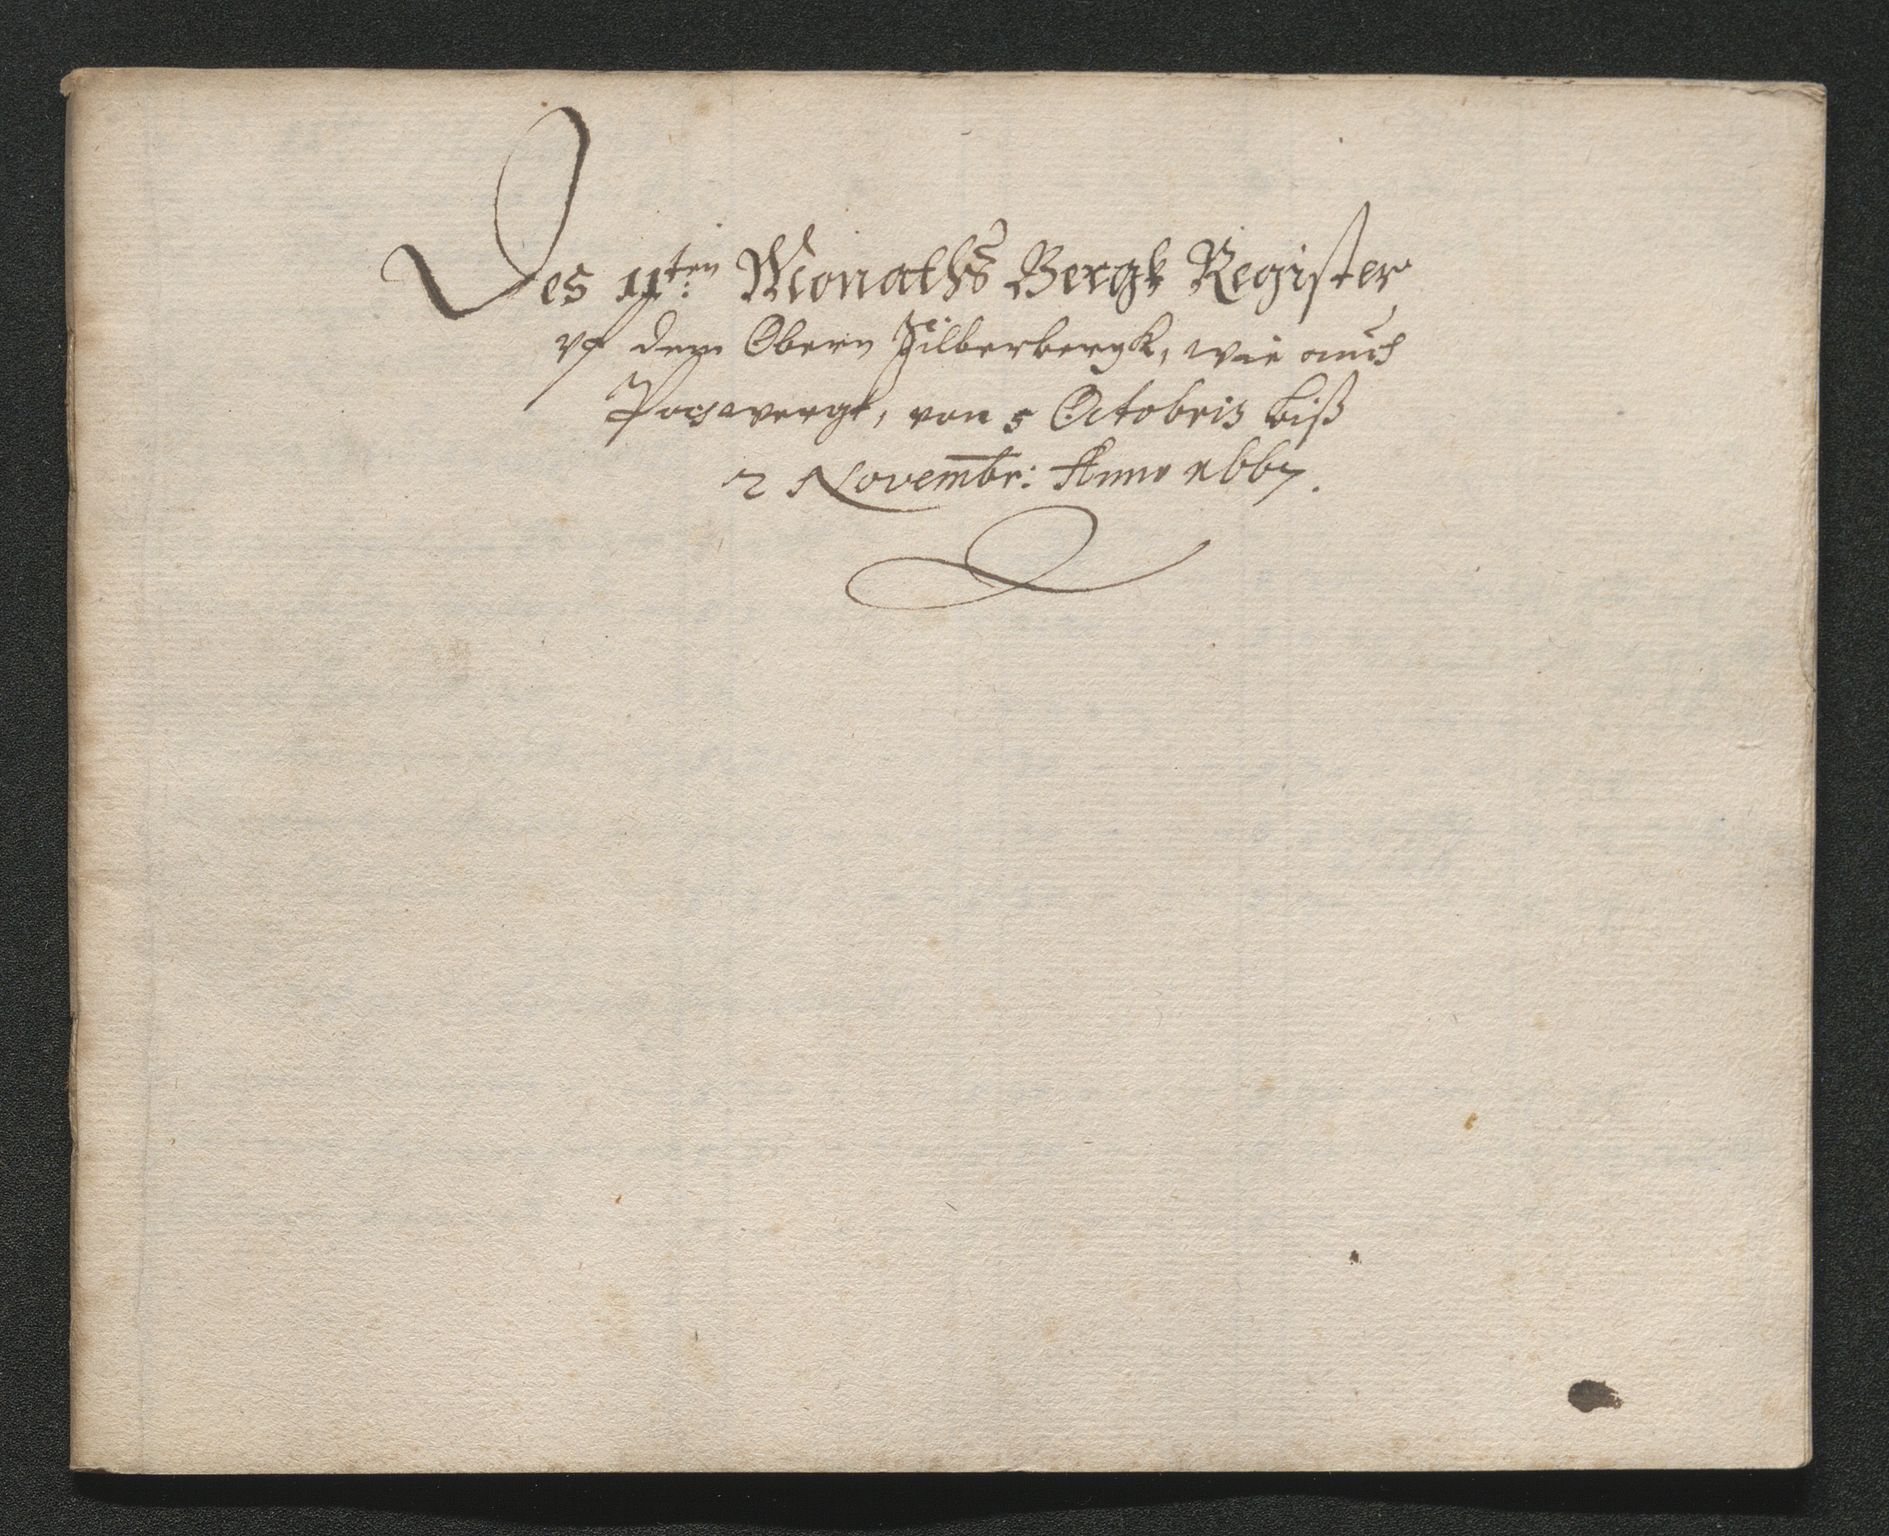 Des 11ten: Monaths Bergk Register
vf dem Obern Silberbergk, wie auch
Pochwergk, von 5 Octobris biß
2 Novembr: Anno 1667.